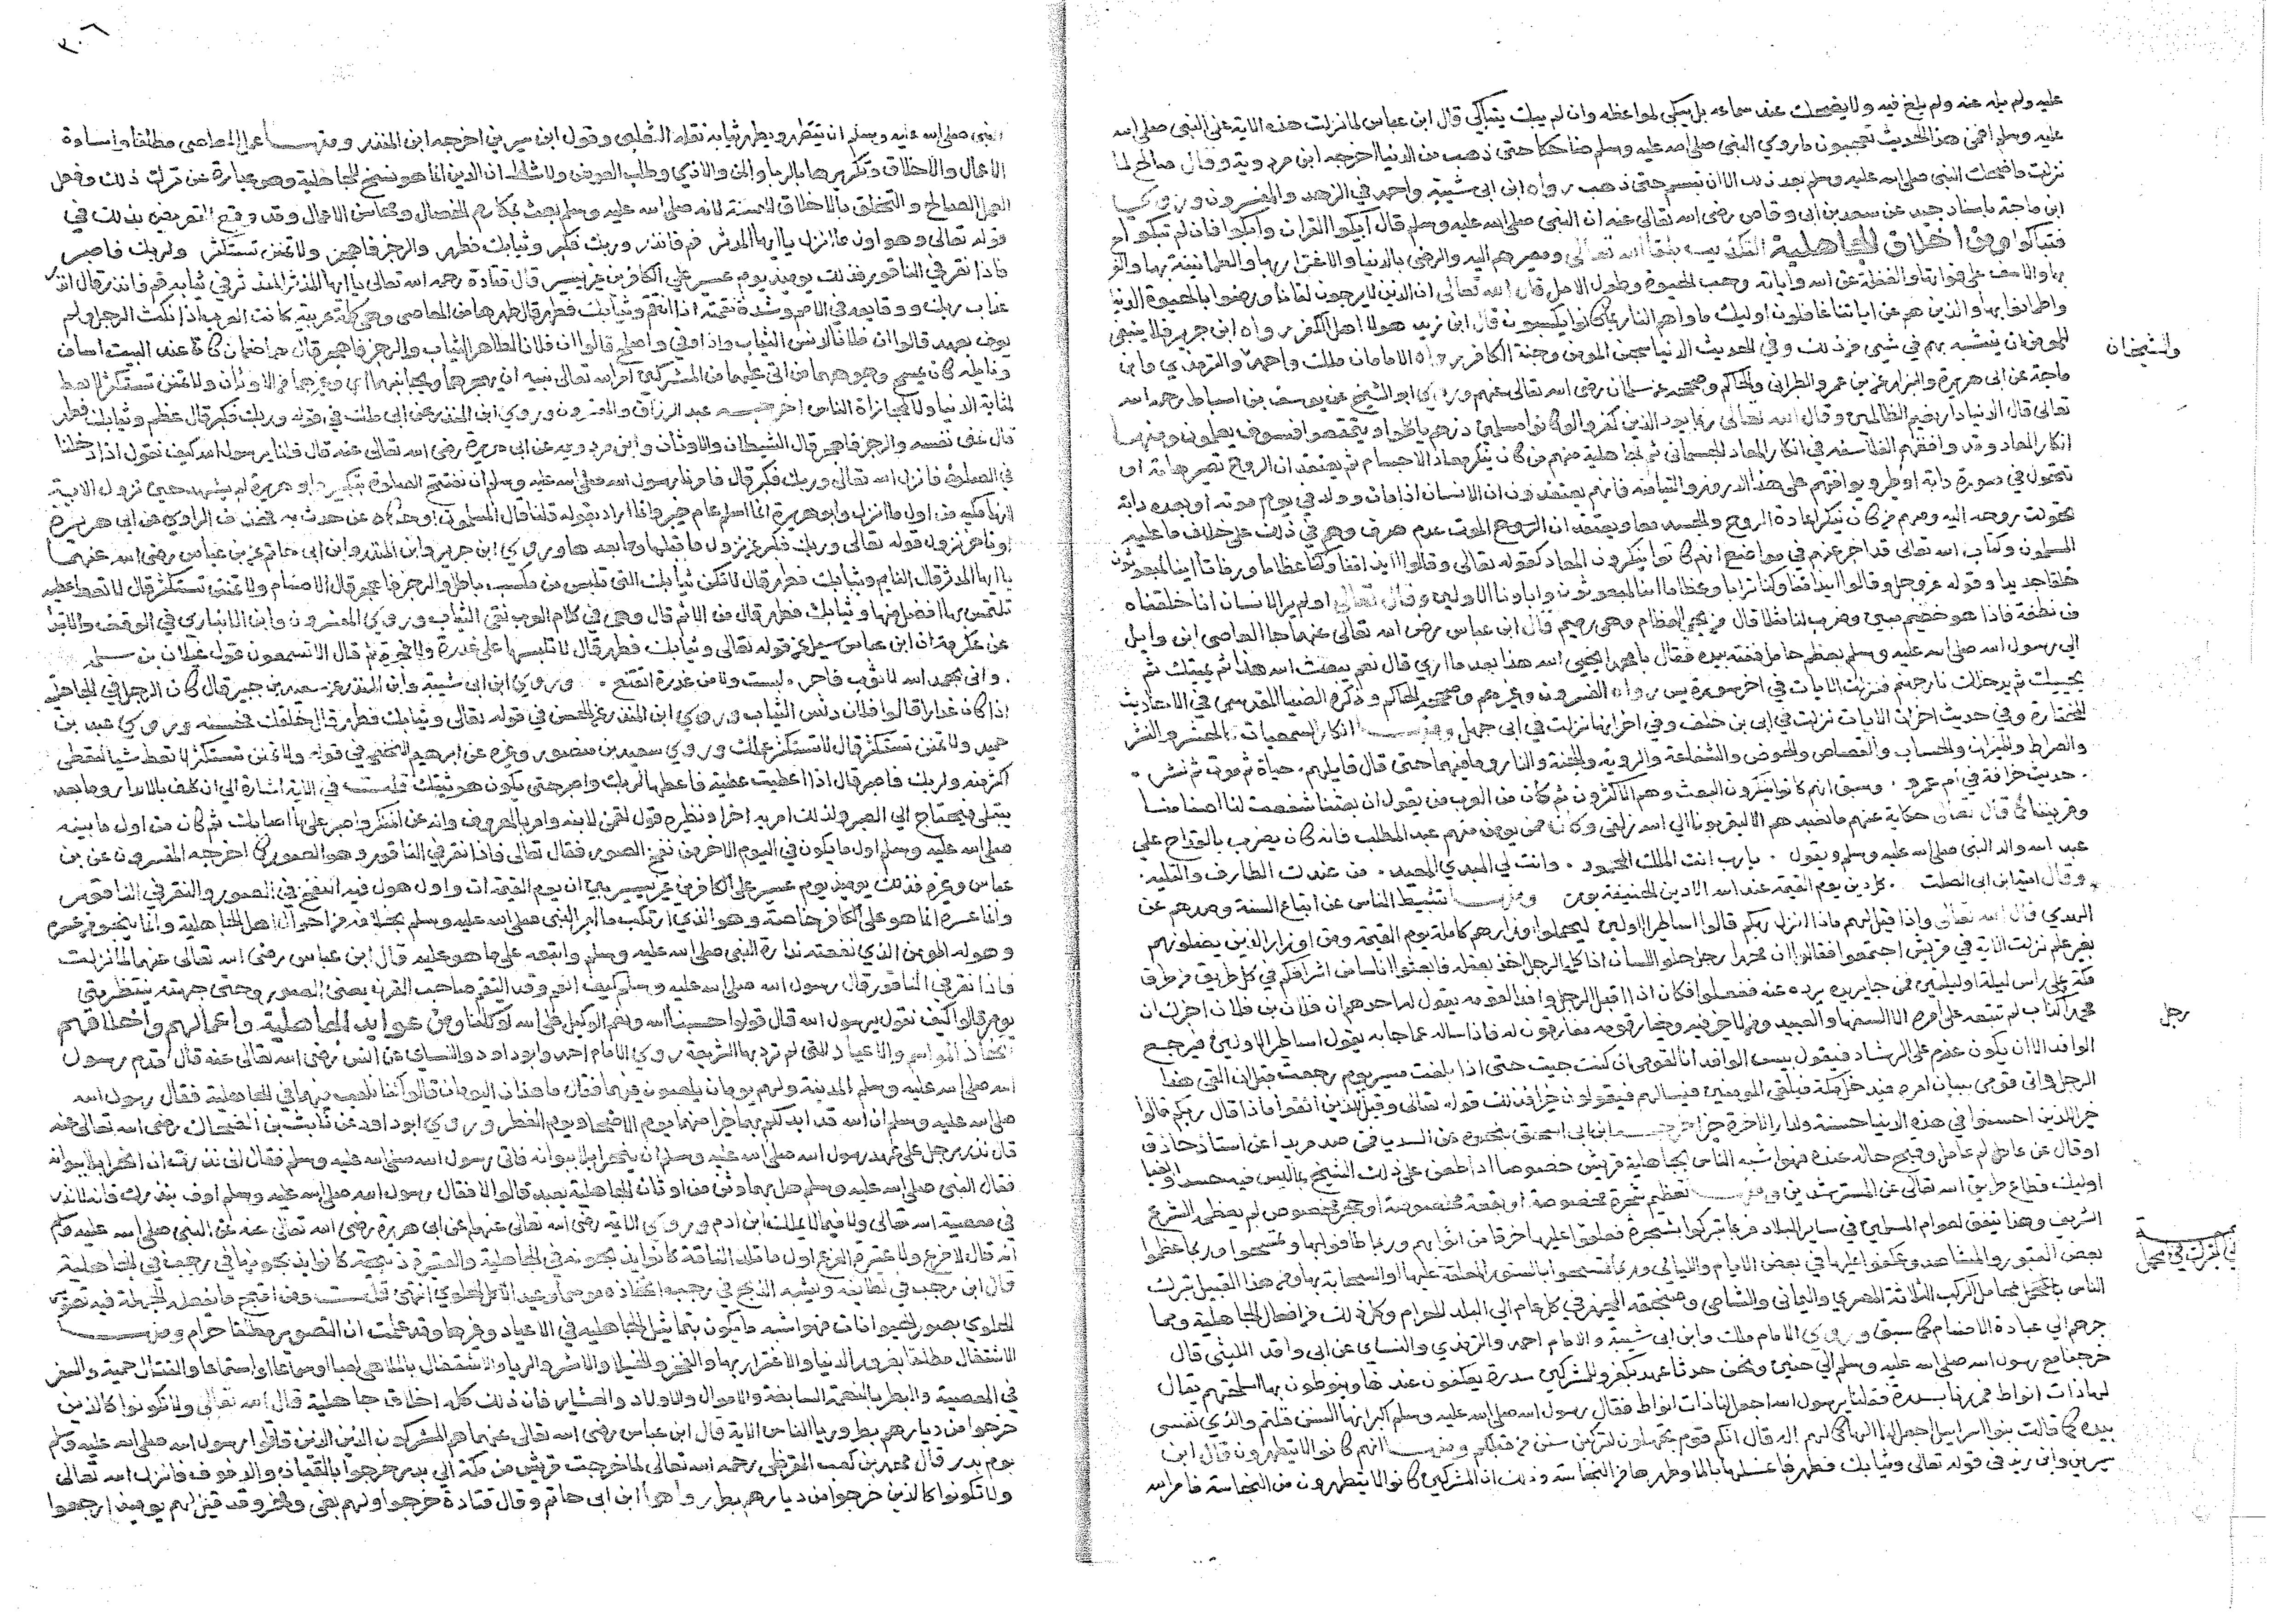 عليه ولم يله عنه ولم يلغ فيه ولا يضحك عند سماعه بل يبكي لمواعظه وان لم يبك يتباكي قال ابن عباس لما نزلت هذه الاية على النبي صلى الله
عليه وسلم افمن هذا الحديث تعجبون ماروي النبي صلى الله عليه وسلم ضاحكا حتى ذهب من الدنيا اخرجه ابن مردوية وقال صالح لما
نزلت ما ضحك النبي صلى الله عليه وسلم بعد ذلك الا ان تبسم حتى ذهب رواه ابن ابي شيبة واحمد في الزهد والمفسرون وروي
ابن ماجة باسناد جيد عن سعد بن ابي وقاص رضى الله تعالى عنه ان النبي صلى الله عليه وسلم قال ابكوا القران وابكوا فان لم تبكوا
فتباكوا ومن اخلاق الجاهلية التكذيب بلقا الله تعالى ومصيرهم اليه والرضى بالدنيا والاغترار بها والطمانينة بها
بها والاسف على فواتها والغفلة عن الله واياته وحب الحيوة وطول الامل قال الله تعالى ان الذين لا يرجون لقانا ورضوا بالحيوة الدنيا
واطمانوا بها والذين هم عن اياتنا غافلون اوليك ماواهم النار بما كانوا يكسبون قال ابن زيد هولا اهل الكفر رواه ابن جرير فلا ينبغي
للمومن ان يتشبه بهم في شيى من ذلك وفي الحديث الدنيا سجن المومن وجنة الكافر رواه الامامان ملك واحمد والترمذي وابن
والشيخان
ماجة عن ابي هريرة والبزار عن بن عمر والطبراني والحاكم وصححه عن سلمان رضى الله تعالى عنهم وروي ابو الشيخ عن يوسف بن اسباط رحمه الله
تعالى قال الدنيا دار نعيم الظالمين وقال الله تعالى ربما يود الذين كفروا لو كانوا مسلمين ذرهم ياكلوا ويتمتعوا فسوف يعلمون ومنها
انكار المعاد وقد وافقهم الفلاسفه في انكار المعاد الجسماني ثم الجاهلية منهم من كان ينكر معاد الاجسام ثم يعتقد ان الروح تصير هامة او
تتحول في صورة دابة او طير ويوافقهم على هذا الدروز والتيامنه فانهم يعتقدون ان الانسان اذا مات وولد في يوم موته او بعده دابة
تحولت روحه اليه ومنهم من كان ينكر اعادة الروح والجسد معا ويعتقد ان الروح الموت عدم صرف وهم في ذلك على خلاف ما عليه
المسلمون وكتاب الله تعالى قد اخبر عنهم في مواضع انهم كانوا ينكرون المعاد كقوله تعالى وقالوا ايذا متنا وكنا عظاما ورفاتا اينا لمبعوثون
خلقا جديدا وقوله عز وجل وقالوا ايذا متنا وكنا ترابا وعظاما اينا لمبعوثون واباونا الاولين وقال تعالى اولم ير الانسان انا خلقناه
من نطفة فاذا هو خصيم مبين وضرب لنا مثلا قال من يحي العظام وهي رميم قال ابن عباس رضى الله تعالى عنهما جا العاصي ابن وايل
الى رسول الله صلى الله عليه وسلم بعظم حايل ففته بيده فقال يا محمد ايحيي الله هذا بعد ما اري قال نعم يبعث الله هذا ثم يميتك ثم
يحييك ثم يدخلك نار جهنم فنزلت الايات في اخر سورة يس رواه المفسرون وغيرهم وصححه الحاكم وذكره الضيا المقدسي في الاحاديث
المختارة وفي حديث اخر ان الايات نزلت في ابي بن خلف وفي اخر انها نزلت في ابي جهل ومنها انكار السمعيات كالحشر والنشر
والصراط والميزان والحساب والقصاص والحوض والشفاعة والروية والجنة والنار وما فيهما حتى قال قايلهم حياة ثم موت ثم نشر
حديث خرافة يا ام عمرو وسبق انهم كانوا ينكرون البعث وهم الاكثرون ثم كان من العرب من يقول ان بعثنا شفعت لنا اصنامنا
وقربتنا كما قال تعالى حكاية عنهم ما نعبدهم الا ليقربونا الى الله زلفى وكان ممن يومن منهم عبد المطلب فانه كان يضرب بالقداح على
عبد الله والد النبي صلى الله عليه وسلم ويقول يا رب انت الملك المحمود وانت لي المبدي المعيد من عندك الطارف والتليد
وقال امية ابن ابي الصلت كل دين يوم القيمة عند الله الا دين الحنيفة بور ومنها تثبيط الناس عن اتباع السنة وصدهم عن
الهدي قال الله تعالى واذا قيل لهم ماذا انزل ربكم قالوا اساطير الاولين ليحملوا اوزارهم كاملة يوم القيمة ومن اوزار الذين يضلونهم
بغير علم نزلت الاية في قريش اجتمعوا فقالوا ان محمدا رجل حلو اللسان اذا كلم الرجل اخذ بعقله فابعثوا اناسا من اشرافكم في كل طريق من طرق
مكة على راس ليلة او ليلتين فمن جا يريده يرده عنه ففعلوا فكان اذا اقبل الرجل وافدا لقومه يقول له احدهم ان فلان بن فلان اخبرك ان
رجل
محمد كذاب لم يتبعه على امره الا السفها والعبيد ومن لا خير فيه وخيار قومه مفارقون له فاذا ساله عما جا به يقول اساطير الاولين فيرجع
الوافد الا ان يكون عزم على الرشاد فيقول بيس الوافد انا لقومى ان كنت جيت حتى اذا بلغت مسير يوم رجعت قبل ان القى هذا
الرجل واتى قومي ببيان امره فيدخل مكة فيلقي المومنين فيسالهم فيقولون خيرا فذلك قوله تعالى وقيل للذين اتقوا ماذا قال ربكم قالوا
خيرا للذين احسنوا في هذه الدنيا حسنة ولدار الاخرة خير
او قال عن عامل لم عامل وقبح حاله عنده فهو اشبه الناس بجاهلية قريش خصوصا اذا طعن على ذلك الشيخ بما ليس فيه
اوليك قطاع طريق الله تعالى عن المسترشدين ومنها تعظيم شجرة مخصوصة او بقعة مخصوصة او حجر مخصوص لم يعظم الشرع
الشريف وهذا يتفق لعوام المسلمين في ساير البلاد فربما تبركوا بشجرة فعلقوا عليها خرقا من اثوابهم وربما طافوا بها وتمسحوا وربما عظموا
بعض القبور والمشاهد وعكفوا عليها في بعض الايام والليالي وربما تمسحوا بالستور المعلقة عليها او السحابة بها ومن هذا القبيل تبرك
الناس بالمحمل
جرهم الى عبادة الاصنام كما سبق وروي الامام ملك وابن ابي شيبة والامام احمد والترمذي والنساي عن ابي واقد الليثي قال
خرجنا مع رسول الله صلى الله عليه وسلم الى حنين ونحن حدثا عهد بكفر وللمشركين سدرة يعكفون عندها وينوطون بها اسلحتهم يقال
لها ذات انواط فمررنا بسدرة فقلنا يرسول الله اجعل لنا ذات انواط فقال رسول الله صلى الله عليه وسلم الله اكبر انها السنن قلتم والذي نفسى
بيده كما قالت بنوا اسرايل اجعل لنا الها كما لهم الهة قال انكم قوم تجهلون لتركبن سنن من قبلكم ومنها انهم كانوا لا يتطهرون قال ابن
سيرين وابن زيد في قوله تعالى وثيابك فطهر فاغسلها بالما وطهرها من النجاسة وذلك ان المشركين كانوا لا يتطهرون من النجاسة فامر الله
٣٠٦
النبي صلى الله عليه وسلم ان يتطهر ويطهر ثيابه نقله الثعلبي وقول ابن سيرين اخرجه ابن المنذر ومنها عمل المعاصي مطلقا واساءة
الاعمال والاخلاق وتكريرها بالريا والمن والاذي وطلب العوض ولا شك ان الدين انما هو نسخ الجاهلية وهو عبارة عن ترك ذلك وفعل
العمل الصالح والتخلق بالاخلاق الحسنة لانه صلى الله عليه وسلم بعث بمكارم الخصال ومحاسن الاعمال وقد وقع التعريض بذلك في
قوله تعالى وهو اول ما انزل يا ايها المدثر قم فانذر وربك فكبر وثيابك فطهر والرجز فاهجر ولا تمنن تستكثر ولربك فاصبر
فاذا نقر في الناقور فذلك يوميذ يوم عسير على الكافرين غير يسير قال قتادة رحمه الله تعالى يا ايها المدثر المتدثر في ثيابه قم فانذر قال انذر
عذاب ربك ووقايعه في الامم وشدة نقمته اذا انتقم وثيابك فطهر قال طهرها من المعاصي وهي كلمة عربية كانت العرب اذا نكث الرجل ولم
يوف بعهد قالوا ان فلانا لدنس الثياب واذا وفى واصلح قالوا ان فلانا لطاهر الثياب والرجز فاهجر قال هما صنمان كانا عند البيت اساف
ونايلة كان يمسح وجوههما من اتى عليهما من المشركين امر الله تعالى نبيه ان يهجرهما ويجانبهما
لمثابة الدنيا ولا لمجازاة الناس اخرجه عبد الرزاق والمفسرون وروي ابن المنذر عن ابي ملك في قوله وربك فكبر قال عظم وثيابك فطهر
قال عنى نفسه والرجز فاهجر قال الشيطان والاوثان وابن مردويه عن ابي هريرة رضى الله تعالى عنه قال قلنا يرسول الله كيف نقول اذا دخلنا
في الصلوة فانزل الله تعالى وربك فكبر قال فامرنا رسول الله صلى الله عليه وسلم ان نفتتح الصلوة بتكبير وابو هريرة لم يشهد حين نزول الاية
او تاخر نزول قوله تعالى وربك فكبر عن نزول ما قبلها وما بعدها وروي ابن جرير وابن المنذر وابن ابي حاتم عن بن عباس رضى الله عنهما
يا ايها المدثر قال النايم وثيابك فطهر قال لا تكن ثيابك التي تلبس من مكسب باطل والرجز فاهجر قال الاصنام ولا تمنن تستكثر قال لا تعط عطية
تلتمس بها افضل منها وثيابك فطهر قال من الاثم قال وهي في كلام العرب نقي الثياب وروي المفسرون وابن الانباري في الوقف والابتدا
عن عكرمة ان ابن عباس سيل عن قوله تعالى وثيابك فطهر قال لا تلبسها على غدرة ولا فجرة ثم قال الا تسمعون قول غيلان بن سلمه
واني بحمد الله لا ثوب فاجر لبست ولا من غدرة اتقنع وروي ابن ابي شيبة وابن المنذر عن سعيد بن جبير قال كان الرجل في الجاهلية
اذا كان غدارا قالوا فلان دنس الثياب وروي ابن المنذر عن الحسن في قوله تعالى وثيابك فطهر قال خلقك فحسنه وروي عبد بن
حميد ولا تمنن تستكثر قال لا تستكثر عملك وروي سعيد بن منصور وغيره عن ابرهيم النخعي في قوله ولا تمنن تستكثر لا تعط شيا لتعطى
اكثر منه ولربك فاصبر قال اذا اعطيت عطية فاعطها لربك واصبر حتى يكون هو يثيبك قلت في الاية اشارة الى ان كلف بالانذار وما بعد
يبتلى فيحتاج الى الصبر ولذلك امر به اخرا ونظيره قول لقمن لابنه وامر بالمعروف وانه عن المنكر واصبر على ما اصابك ثم كان من اول ما بينه
صلى الله عليه وسلم اول ما يكون في اليوم الاخر من نفخ الصور فقال تعالى فاذا نقر في الناقور وهو الصور كما اخرجه المفسرون عن بن
عباس وغيره فذلك يوميذ يوم عسير على الكافرين غير يسير بين ان يوم القيمة ات واول هول فيه النفخ في الصور والنقر في الناقور
وانما عسره انما هو على الكافر خاصة وهو الذي ارتكب ما امر النبي صلى الله عليه وسلم بخلافه من احوال اهل الجاهلية وانما ينجو من عسره
وهوله المومن الذي نفعته نذارة النبي صلى الله عليه وسلم واتبعه على ما هو عليه قال ابن عباس رضى الله تعالى عنهما لما نزلت
فاذا نقر في الناقور قال رسول الله صلى الله عليه وسلم كيف انعم وقد التقم صاحب القرن يعني الصور وحنى جبهته ينتظر متى
يومر قالوا كيف نقول يرسول الله قال قولوا حسبنا الله ونعم الوكيل على الله توكلنا ومن عوايد الجاهلية واعمالهم واخلاقهم
اتخاذ المواسم والاعياد التي لم ترد بها الشريعة روي الامام احمد وابو داود والنساي عن انس رضى الله تعالى عنه قال قدم رسول
الله صلى الله عليه وسلم المدينة ولهم يومان يلعبون فيهما فقال ما هذان اليومان قالوا كنا نلعب فيهما في الجاهلية فقال رسول الله
صلى الله عليه وسلم ان الله قد ابدلكم بهما خيرا منهما يوم الاضحى ويوم الفطر وروي ابو داود عن ثابت بن الضحاك رضى الله تعالى عنه
قال نذر رجل على عهد رسول الله صلى الله عليه وسلم ان ينحر ابلا ببوانه فاتى رسول الله صلى الله عليه وسلم فقال انى نذرت ان انحر ابلا ببوانه
فقال النبي صلى الله عليه وسلم هل بها وثن من اوثان الجاهلية يعبد قالوا لا فقال رسول الله صلى الله عليه وسلم اوف بنذرك فانه لا نذر
في معصية الله تعالى ولا فيما لا يملك ابن ادم وروي الاية رضى الله تعالى عنهم عن ابي هريرة رضى الله تعالى عنه عن النبي صلى الله عليه وسلم
انه قال لا فرع ولا عتيرة الفرع اول ما تلد الناقة كانوا يذبحونه في الجاهلية والعتيرة ذبيحة كانوا يذبحونها في رجب في الجاهلية
قال ابن رجب في لطايفه ويشبه الذبح في رجب اتخاذه موسما وعيدا لاكل الحلوى انتهى قلت ومن اقبح ما يفعله الجهلة فيه تصوير
الحلوي بصور الحيوانات فهو اشبه ما يكون بتماثيل الجاهليه في الاعياد وغيرها وقد علمت ان التصوير مطلقا حرام ومنها
الاشتغال مطلقا بغرور الدنيا والاغترار بها والفخر والخيلا والاشر والريا والاشتغال بالملاهي لعبا وسماعا واستماعا والقتال حمية والسفر
في المعصية والبطر بالنعمة السابغة والاموال والاولاد والعشاير فان ذلك كله اخلاق جاهلية قال الله تعالى ولا تكونوا كالذين
خرجوا من ديارهم بطرا وريا الناس الاية قال ابن عباس رضى الله تعالى عنهما هم المشركون الذين قاتلوا رسول الله صلى الله عليه وسلم
يوم بدر قال محمد بن كعب القرظي رحمه الله تعالى لما خرجت قريش من مكة الى بدر خرجوا بالقيان والدفوف فانزل الله تعالى
ولا تكونوا كالذين خرجوا من ديارهم بطرا رواهما ابن ابي حاتم وقال قتادة خرجوا ولهم بغي وفخر وقد قيل لهم يوميذ ارجعوا